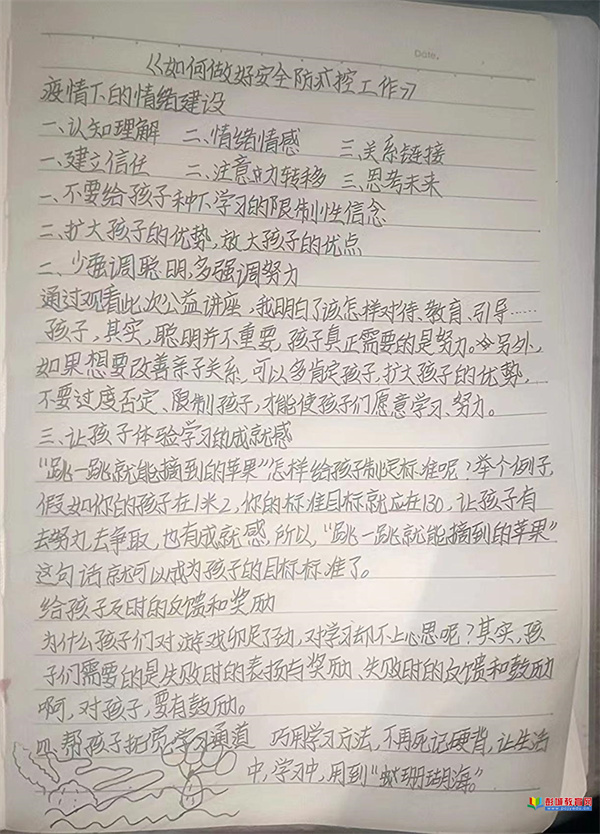 Date.
《如何做好安全防疫控工作》
疫情下的情绪建设
一、认知理解 二、情绪情感 三、关系链接
一、建立信任 二、注意力转移 三、思考未来
一、不要给孩子种下学习的限制性信念
二、扩大孩子的优势,放大孩子的优点
二、少强调聪明,多强调努力
通过观看此次公益讲座,我明白了该怎样对待、教育、引导……
孩子,其实,聪明并不重要,孩子真正需要的是努力。另外,
如果想要改善亲子关系,可以多肯定孩子,扩大孩子的优势,
不要过度否定、限制孩子,才能使孩子们愿意学习、努力。
三、让孩子体验学习的成就感
“跳一跳就能摘到的苹果”怎样给孩子制定标准呢?举个例子,
假如你的孩子在1米2,你的标准目标就应在130,让孩子有
去努力,去争取,也有成就感,所以,“跳一跳就能摘到的苹果”
这句话就可以成为孩子的目标标准了。
给孩子及时的反馈和奖励
为什么孩子们对游戏卯足了劲,对学习却不上心思呢?其实,孩
子们需要的是失败时的表扬与奖励、失败时的反馈和鼓励
啊,对孩子,要有鼓励。
四、帮孩子拓宽学习通道 巧用学习方法,不再死记硬背,让生活
中,学习中,用到“珊瑚海。”
彭城教育网